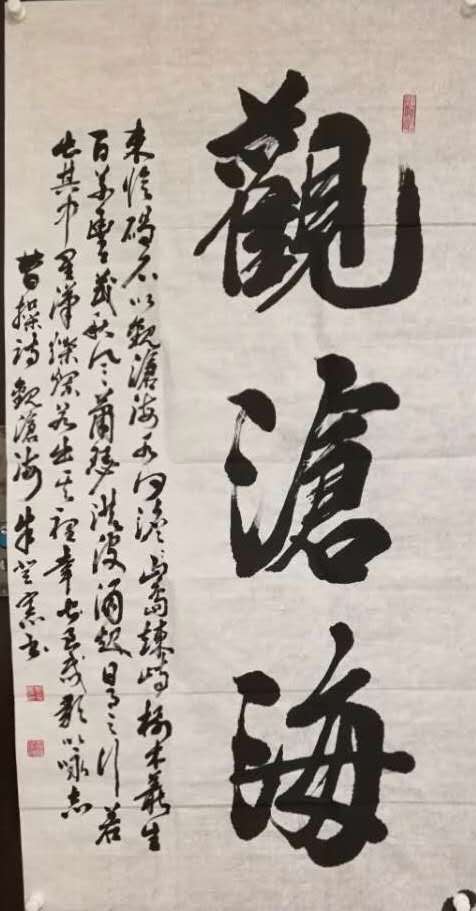 觀滄海
東臨碣石以觀滄海水何澹〻山島竦峙樹木叢生
百草豐茂秋風蕭瑟洪波涌起日月之行若
出其中星漢燦爛若出其裡幸甚至哉歌以咏志
曹操詩觀滄海朱登憲书